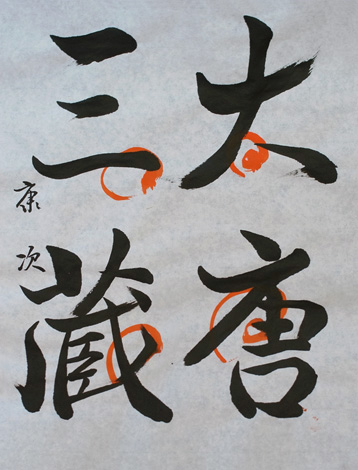 大唐
三蔵
康次